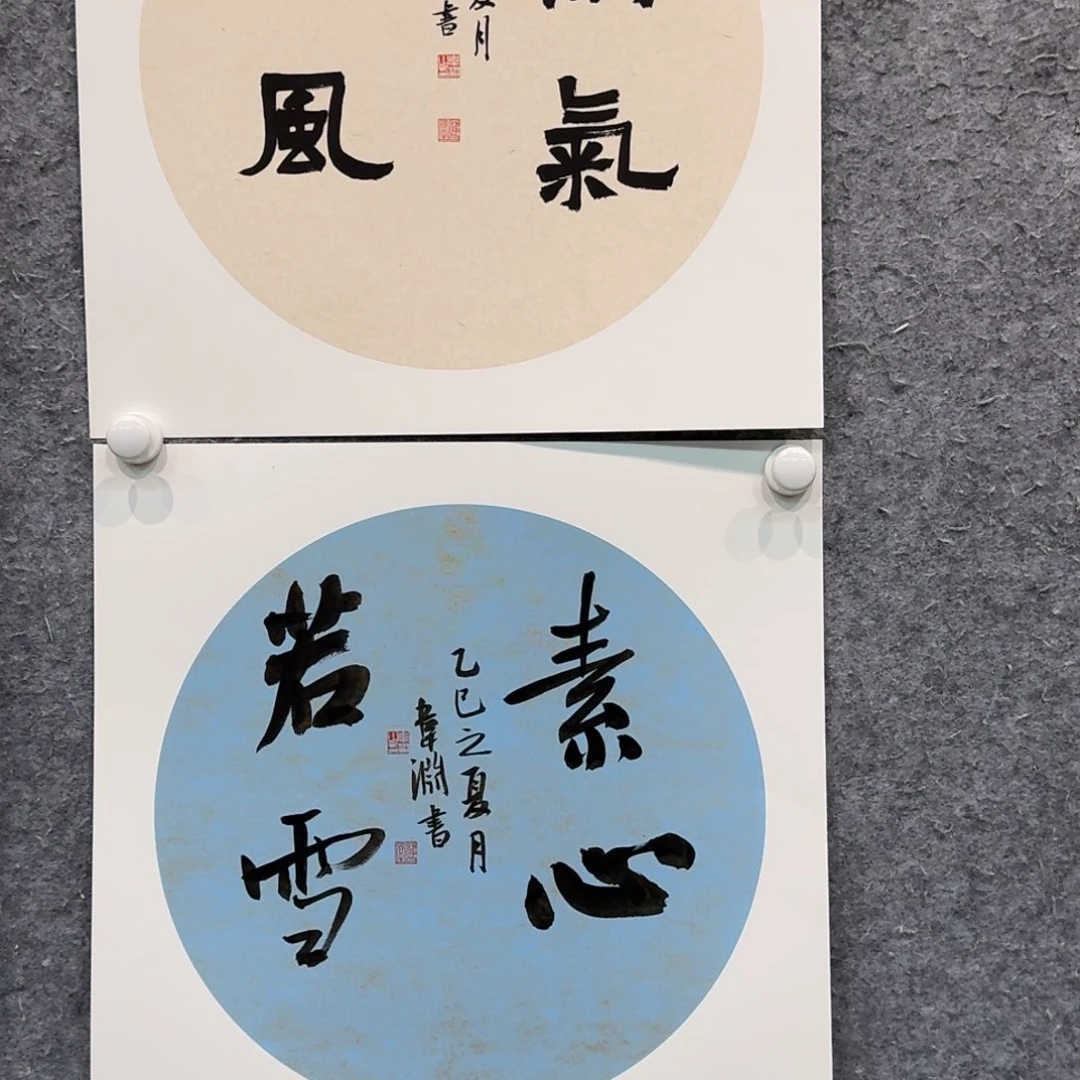 氣
風
夏月
書
素心
若雪
乙巳之夏月
韋淵書